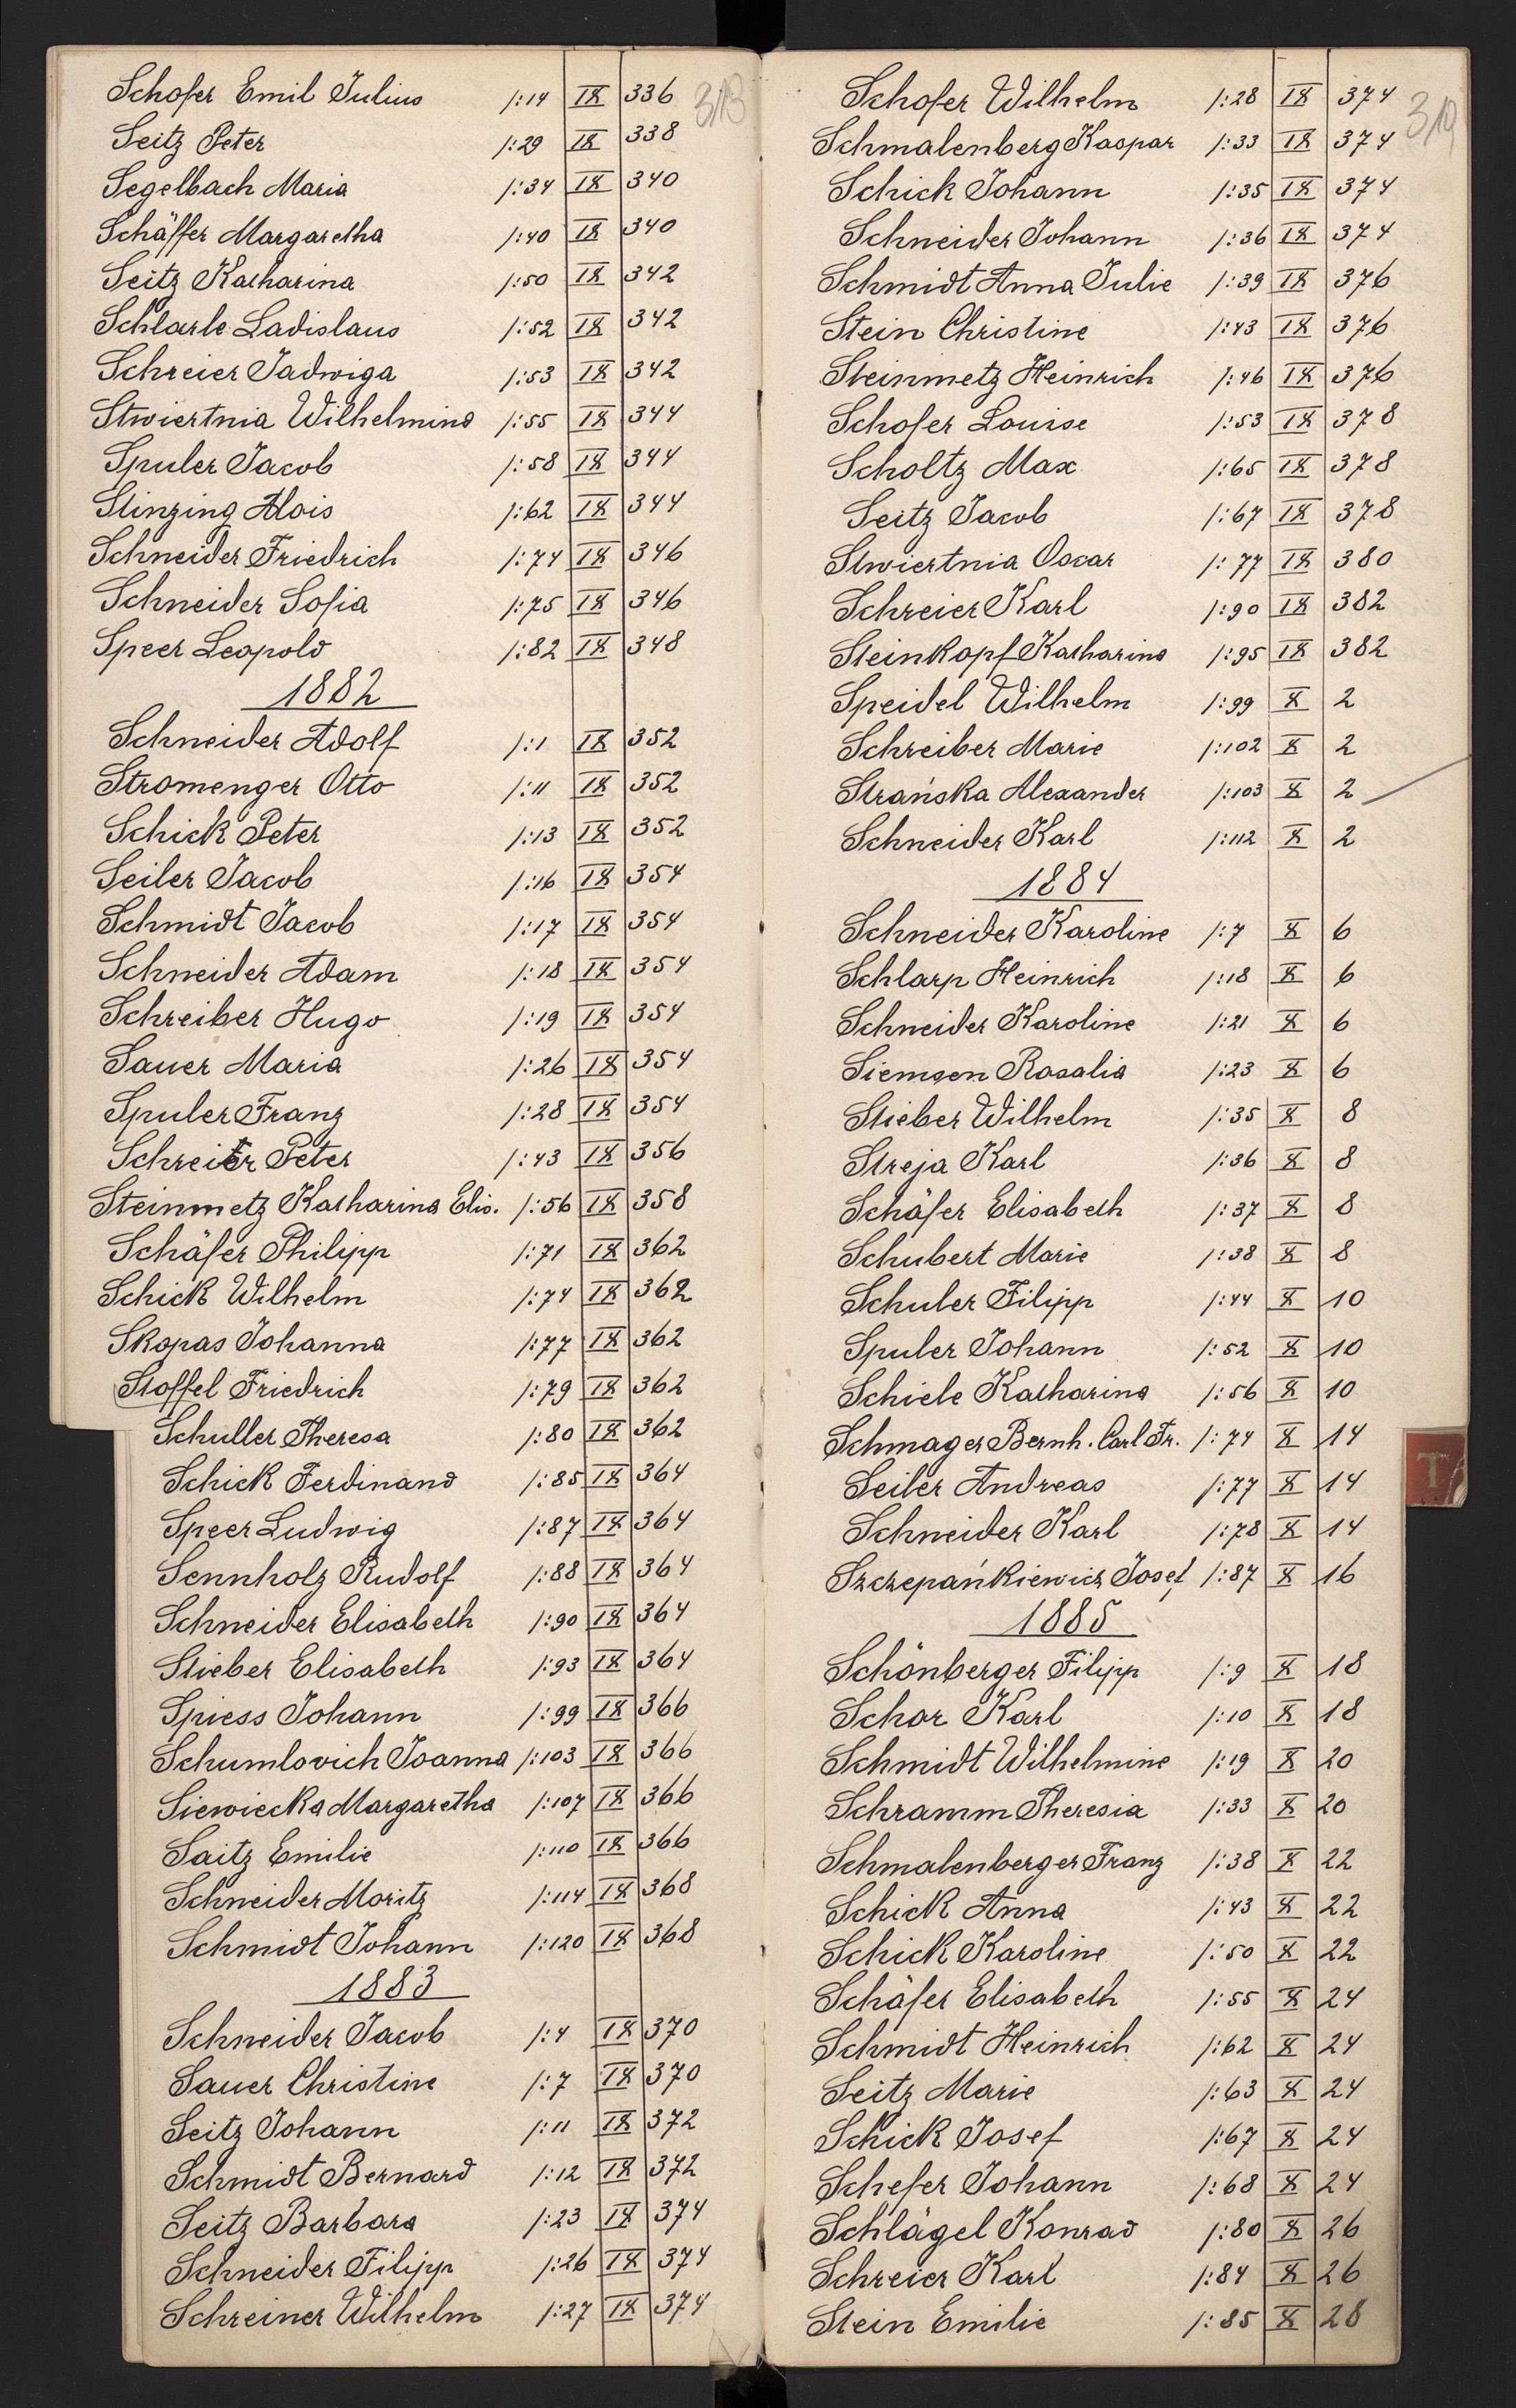 313
Schofer Emil Julius 1:14 IX 336
Seitz Peter 1:29 IX 338
Segelbach Maria 1:34 IX 340
Schäffer Margaretha 1:40 IX 340
Seitz Katharina 1:50 IX 342
Schlarle Ladislaus 1:52 IX 342
Schreier Jadwiga 1:53 IX 342
Stwiertnia Wilhelmina 1:55 IX 344
Spuler Jacob 1:58 IX 344
Stinzing Alois 1:62 IX 344
Schneider Friedrich 1:74 IX 346
Schneider Sofia 1:75 IX 346
Speer Leopold 1:82 IX 348
1882
Schneider Adolf 1:1 IX 352
Stromenger Otto 1:11 IX 352
Schick Peter 1:13 IX 352
Seiler Jacob 1:16 IX 354
Schmidt Jacob 1:17 IX 354
Schneider Adam 1:18 IX 354
Schreiber Hugo 1:19 IX 354
Sauer Maria 1:26 IX 354
Spuler Franz 1:28 IX 354
Schreier Peter 1:43 IX 356
Steinmetz Katharina Elis. 1:56 IX 358
Schäfer Philipp 1:71 IX 362
Schick Wilhelm 1:74 IX 362
Skopas Johanna 1:77 IX 362
Stoffel Friedrich 1:79 IX 362
Schuller Theresa 1:80 IX 362
Schick Ferdinand 1:85 IX 364
Speer Ludwig 1:87 IX 364
Sennholz Rudolf 1:88 IX 364
Schneider Elisabeth 1:90 IX 364
Stieber Elisabeth 1:93 IX 364
Spiess Johann 1:99 IX 366
Schumlovich Joanna 1:103 IX 366
Siewiecka Margaretha 1:107 IX 366
Saitz Emilie 1:110 IX 366
Schneider Moritz 1:114 IX 368
Schmidt Johann 1:120 IX 368
1883
Schneider Jacob 1:4 IX 370
Sauer Christine 1:7 IX 370
Seitz Johann 1:11 IX 372
Schmidt Bernard 1:12 IX 372
Seitz Barbara 1:23 IX 374
Schneider Filipp 1:26 IX 374
Schreiner Wilhelm 1:27 IX 374
319
Schofer Wilhelm 1:28 IX 374
Schmalenberg Kaspar 1:33 IX 374
Schick Johann 1:35 IX 374
Schneider Johann 1:36 IX 374
Schmidt Anna Julie 1:39 IX 376
Stein Christine 1:43 IX 376
Steinmetz Heinrich 1:46 IX 376
Schofer Louise 1:53 IX 378
Scholtz Max 1:65 IX 378
Seitz Jacob 1:67 IX 378
Stwiertnia Oscar 1:77 IX 380
Schreier Karl 1:90 IX 382
Steinkopf Katharina 1:95 IX 382
Speidel Wilhelm 1:99 X 2
Schreiber Marie 1:102 X 2
Strańska Alexander 1:103 X 2
Schneider Karl 1:112 X 2
1884
Schneider Karoline 1:7 X 6
Schlarp Heinrich 1:18 X 6
Schneider Karoline 1:21 X 6
Siemsen Rosalia 1:23 X 6
Stieber Wilhelm 1:35 X 8
Streja Karl 1:36 X 8
Schäfer Elisabeth 1:37 X 8
Schubert Marie 1:38 X 8
Schuler Filipp 1:44 X 10
Spuler Johann 1:52 X 10
Schiele Katharina 1:56 X 10
Schmager Bernh. Carl Fr. 1:74 X 14
Seiler Andreas 1:77 X 14
Schneider Karl 1:78 X 14
Szczepańkiewicz Josef 1:87 X 16
1885
Schönberger Filipp 1:9 X 18
Schor Karl 1:10 X 18
Schmidt Wilhelmine 1:19 X 20
Schramm Theresia 1:33 X 20
Schmalenberger Franz 1:38 X 22
Schick Anna 1:43 X 22
Schick Karoline 1:50 X 22
Schäfer Elisabeth 1:55 X 24
Schmidt Heinrich 1:62 X 24
Seitz Marie 1:63 X 24
Schick Josef 1:67 X 24
Schefer Johann 1:68 X 24
Schlägel Konrad 1:80 X 26
Schreier Karl 1:84 X 26
Stein Emilie 1:85 X 28
T